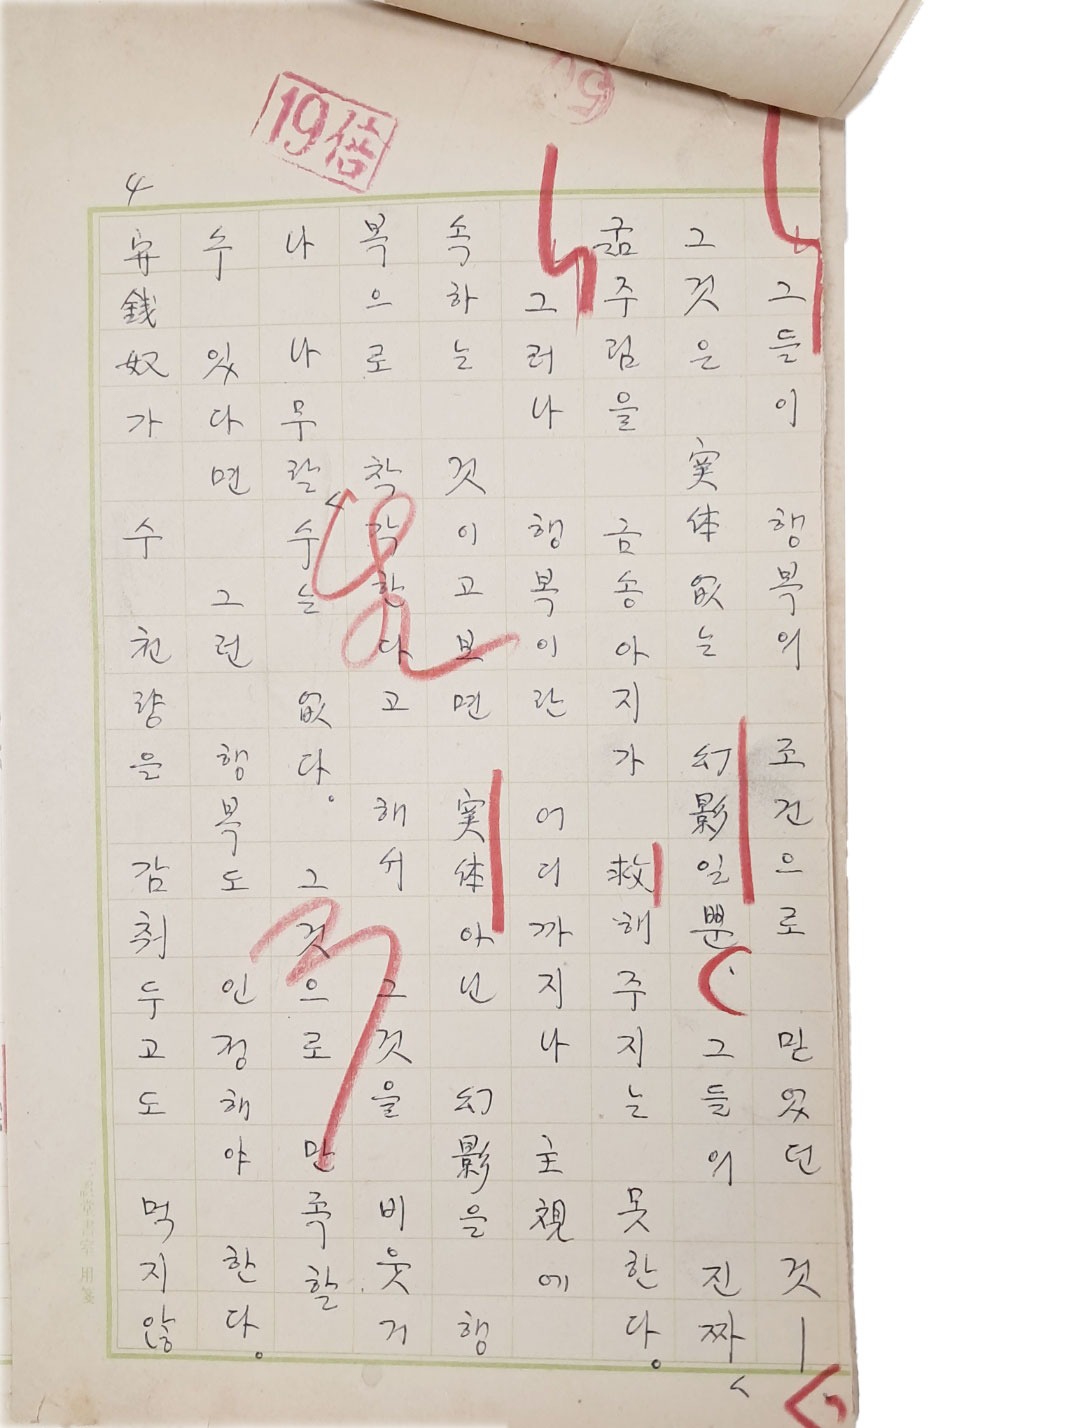 19倍
50
4
그들이 행복의 조건으로 믿었던 것—
그것은 実体 없는 幻影일뿐, 그들의 진짜
굶주림을 금송아지가 救해주지는 못한다.
그러나 행복이란 어디까지나 主視에
속하는 것이고 보면 実体아닌 幻影을 행
복으로 착각한다고 해서 그것을 비웃거
나 나무랄 수는 없다. 그것으로 만족할
수 있다면 그런 행복도 인정해야 한다.
守銭奴가 수 천량을 감춰두고도 먹지않
堂書室 用箋